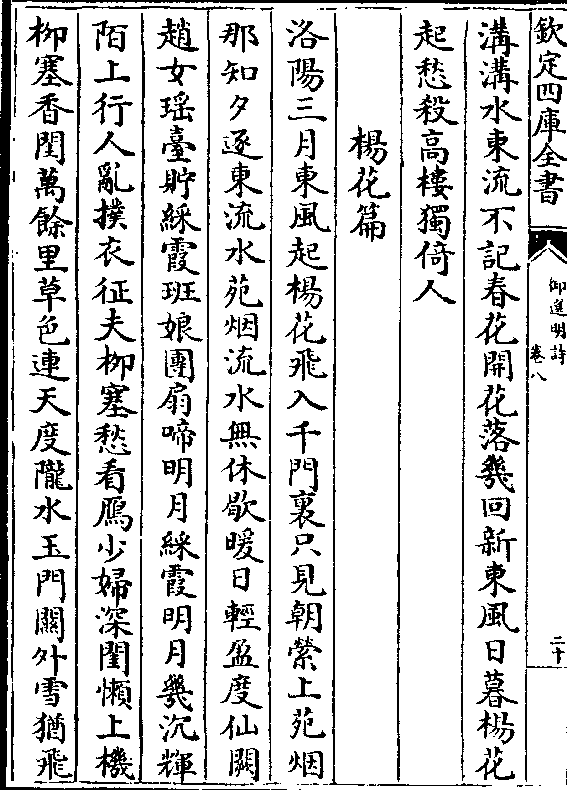 欽定四庫全書
御選明詩
卷八
二十
溝溝水東流不記春花開花落幾回新東風日暮楊花
起愁殺高樓獨倚人
楊花篇
洛陽三月東風起楊花飛入千門裏只見朝縈上苑烟
那知夕逐東流水苑烟流水無休歇暖日輕盈度仙闕
趙女瑶臺貯綵霞班娘團扇啼明月綵霞明月幾沉輝
陌上行人亂撲衣征夫柳塞愁看鴈少婦深閨懶上機
柳塞香閨萬餘里草色連天度隴水玉門關外雪猶飛